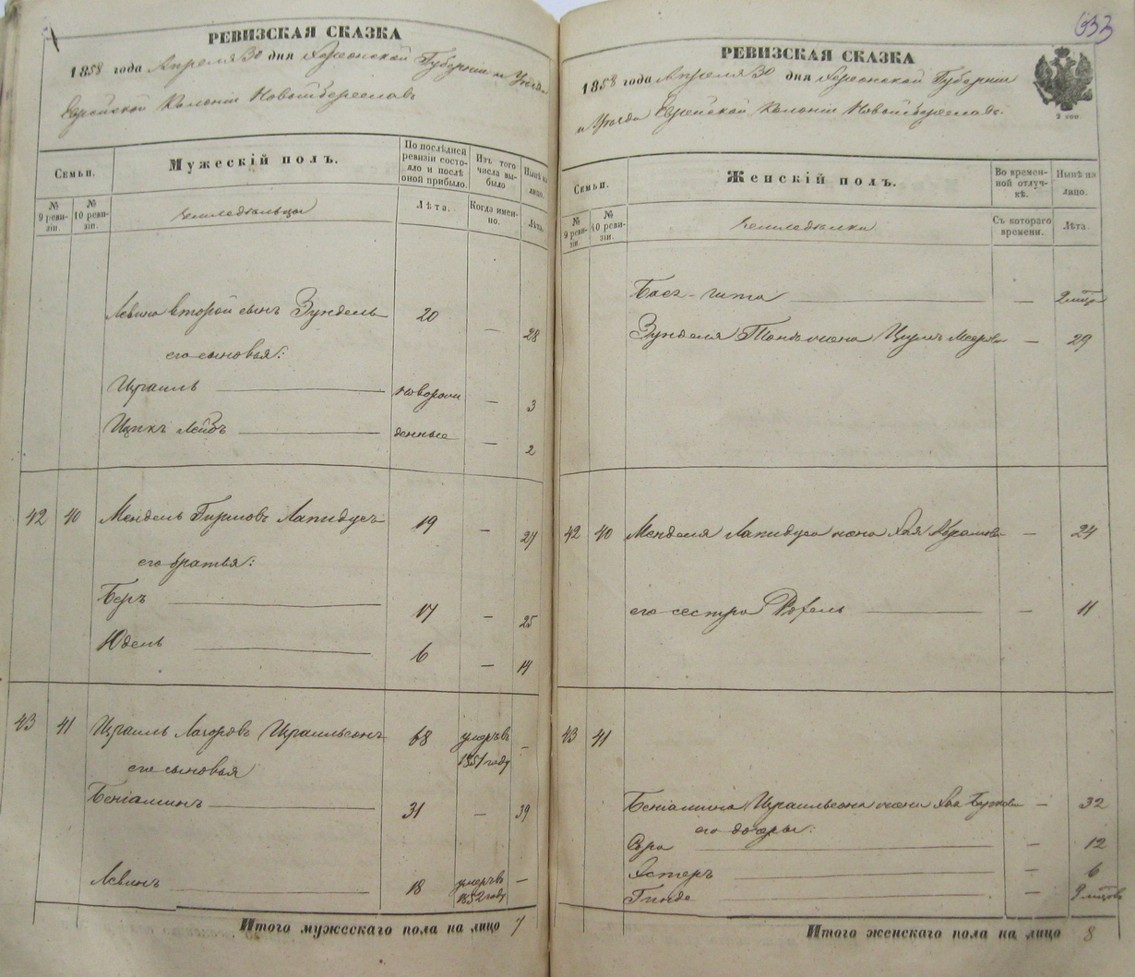 РЕВИЗСКАЯ СКАЗКА
1858 года Апреля 30 дня Херсонской Губернии и Уезда
Еврейской Колонии
По послѣдней ревизіи состояло и послѣ оной прибыло.
Изъ того числа выбыло
Нынѣ на лицо.
Семьи.
Мужескій полъ.
№ 9 ревизіи.
№ 10 ревизіи.
земледѣльцы
Лѣта.
Когда именно.
Лѣта.
второй сынъ Зундель 20 — 28
его сыновья:
Израиль новорож 3
Ицикъ Лейбъ денные 2
42 40 Мендель Лапидусъ 19 —
его братья:
Беръ 17 — 25
Юдель 6 — 14
43 41 Израиль Израильсонъ 68 умеръ въ 1851 году —
его сыновья
Беніаминъ 31 — 39
Левинъ 18 умеръ въ 1852 году —
Итого мужескаго пола на лицо 7
633
РЕВИЗСКАЯ СКАЗКА
1858 года Апреля 30 дня Херсонской Губернии
и Уезда Еврейской Колонии
Семьи.
Женскій полъ.
Во временной отлучкѣ.
Нынѣ на лицо.
№ 9 ревизіи.
№ 10 ревизіи.
земледѣлки
Съ котораго времени.
Лѣта.
Зунделя жена — 29
42 40 Менделя Лапидуса жена Хая — 24
его сестра — 11
43 41
Беніамина Израильсона жена Хая — 32
его дочери:
Сура — 12
Эстеръ — 6
Гинда —
Итого женскаго пола на лицо 8